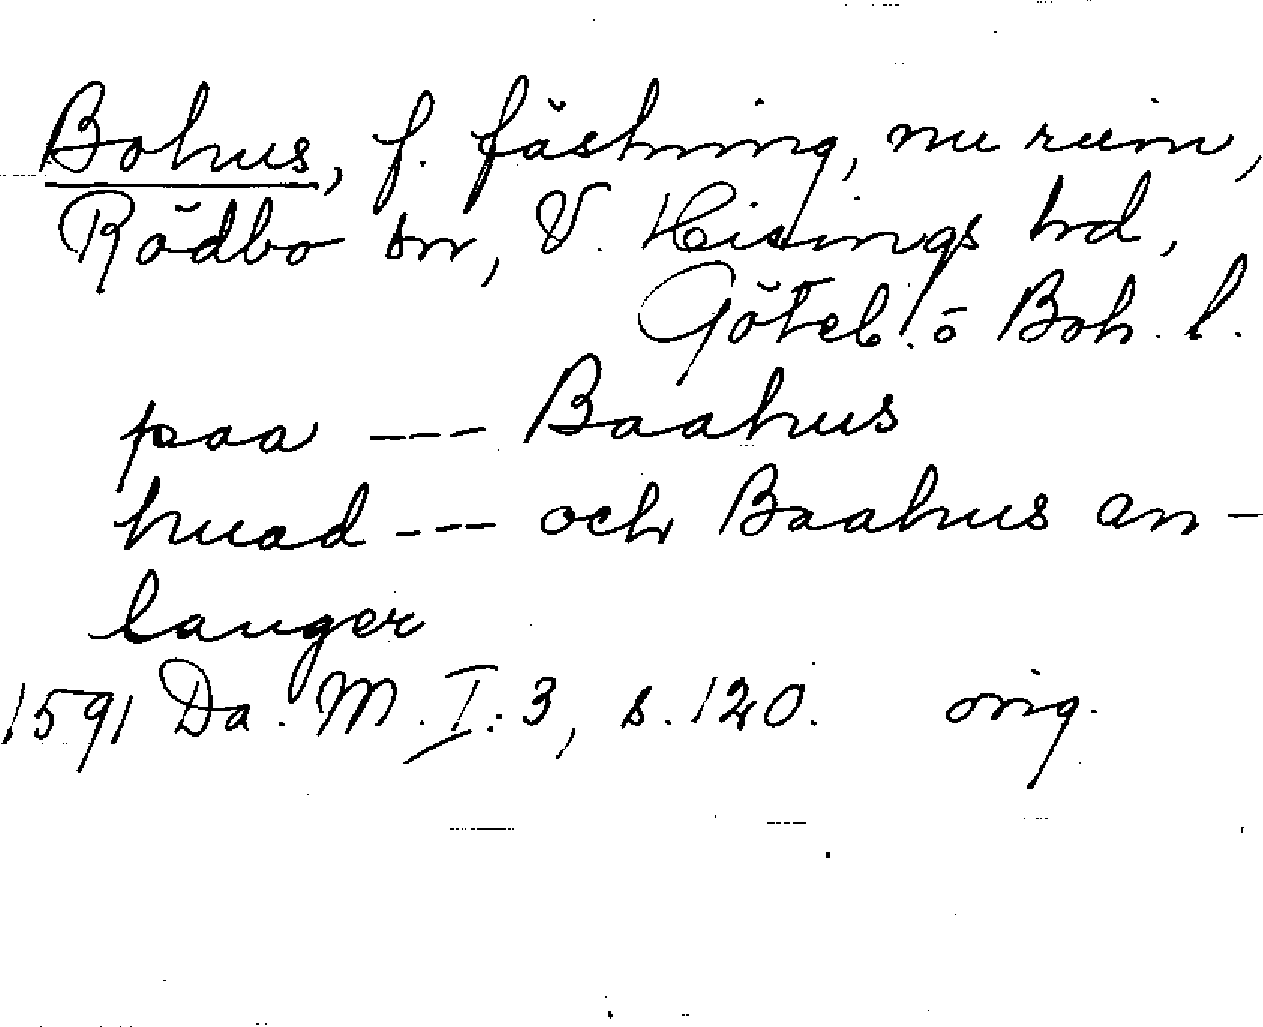 Bohus, f. fästning, nu ruin,
Rödbo sn, V. Hisings hd,
Göteb. o Boh. l.
paa --- Baahus
huad --- och Baahus an-
langer
1591 Da. M. I:3, s. 120. orig.